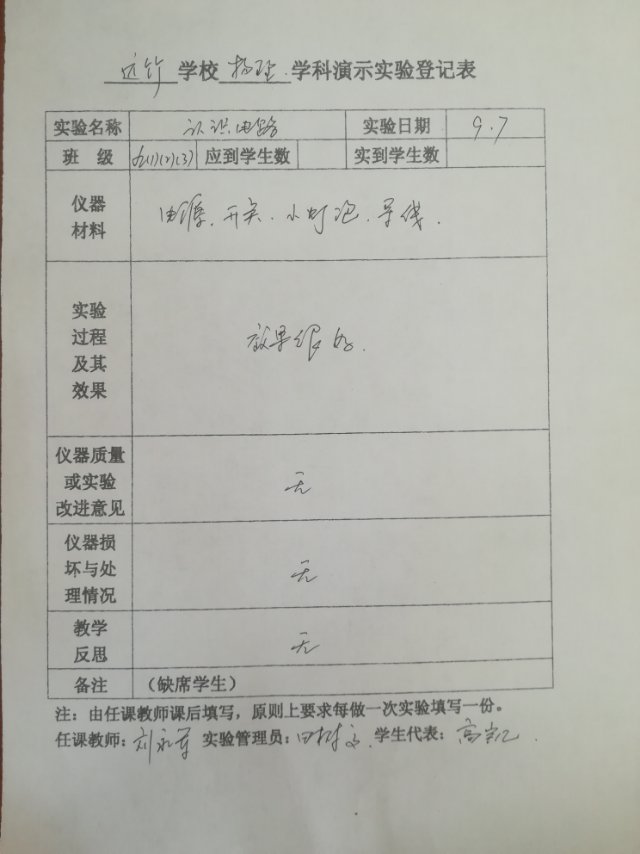 学校 物理 学科演示实验登记表
实验名称 认识电路 实验日期 9.7
班 级 九(1)(2)(3) 应到学生数 实到学生数
仪器
材料
电源、开关、小灯泡、导线.
实验
过程
及其
效果
效果很好.
仪器质量
或实验
改进意见
无
仪器损
坏与处
理情况
无
教学
反思
无
备注 （缺席学生）
注：由任课教师课后填写，原则上要求每做一次实验填写一份。
任课教师：刘永军 实验管理员：田树文 学生代表：高